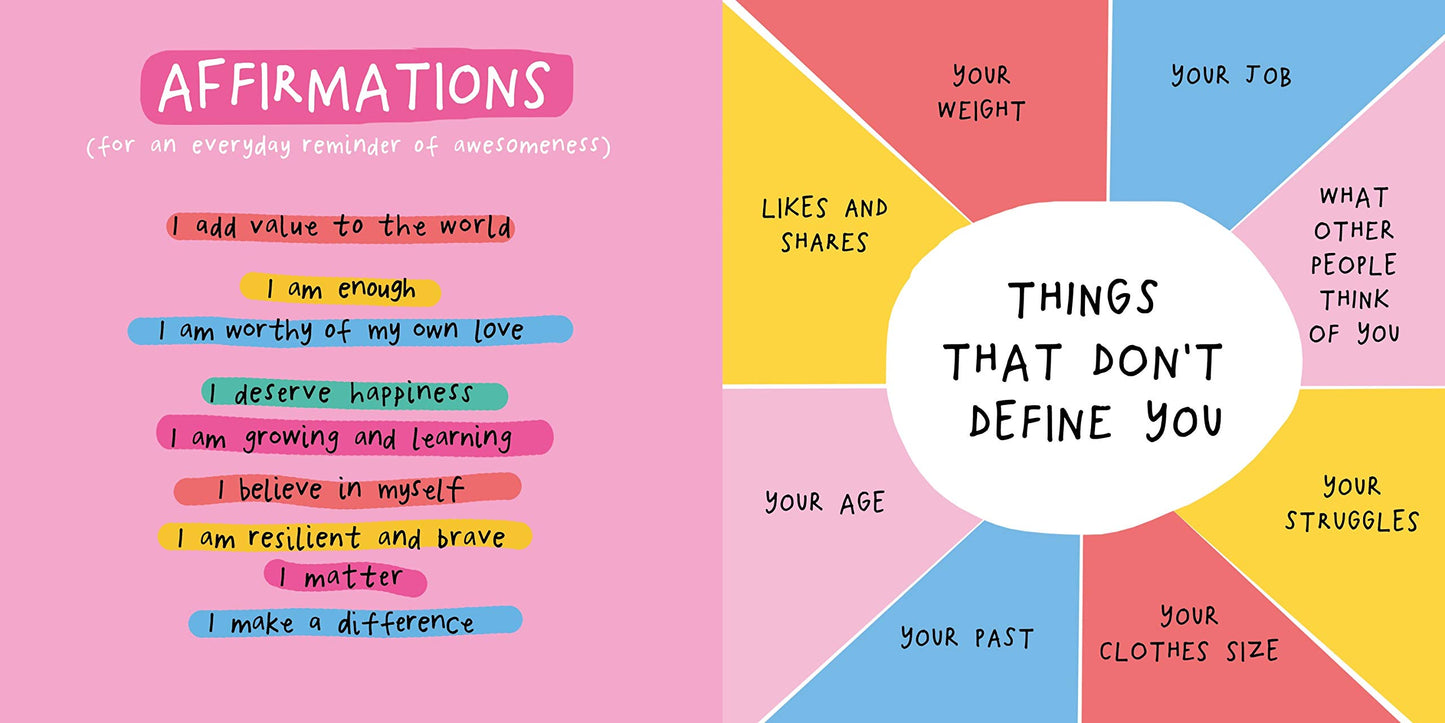 AFFIRMATIONS
(for an everyday reminder of awesomeness)
I add value to the world
I am enough
I am worthy of my own love
I deserve happiness
I am growing and learning
I believe in myself
I am resilient and brave
I matter
I make a difference
THINGS
THAT DON'T
DEFINE YOU
YOUR
WEIGHT
YOUR JOB
WHAT
OTHER
PEOPLE
THINK
OF YOU
YOUR
STRUGGLES
YOUR
CLOTHES SIZE
YOUR PAST
YOUR AGE
LIKES AND
SHARES